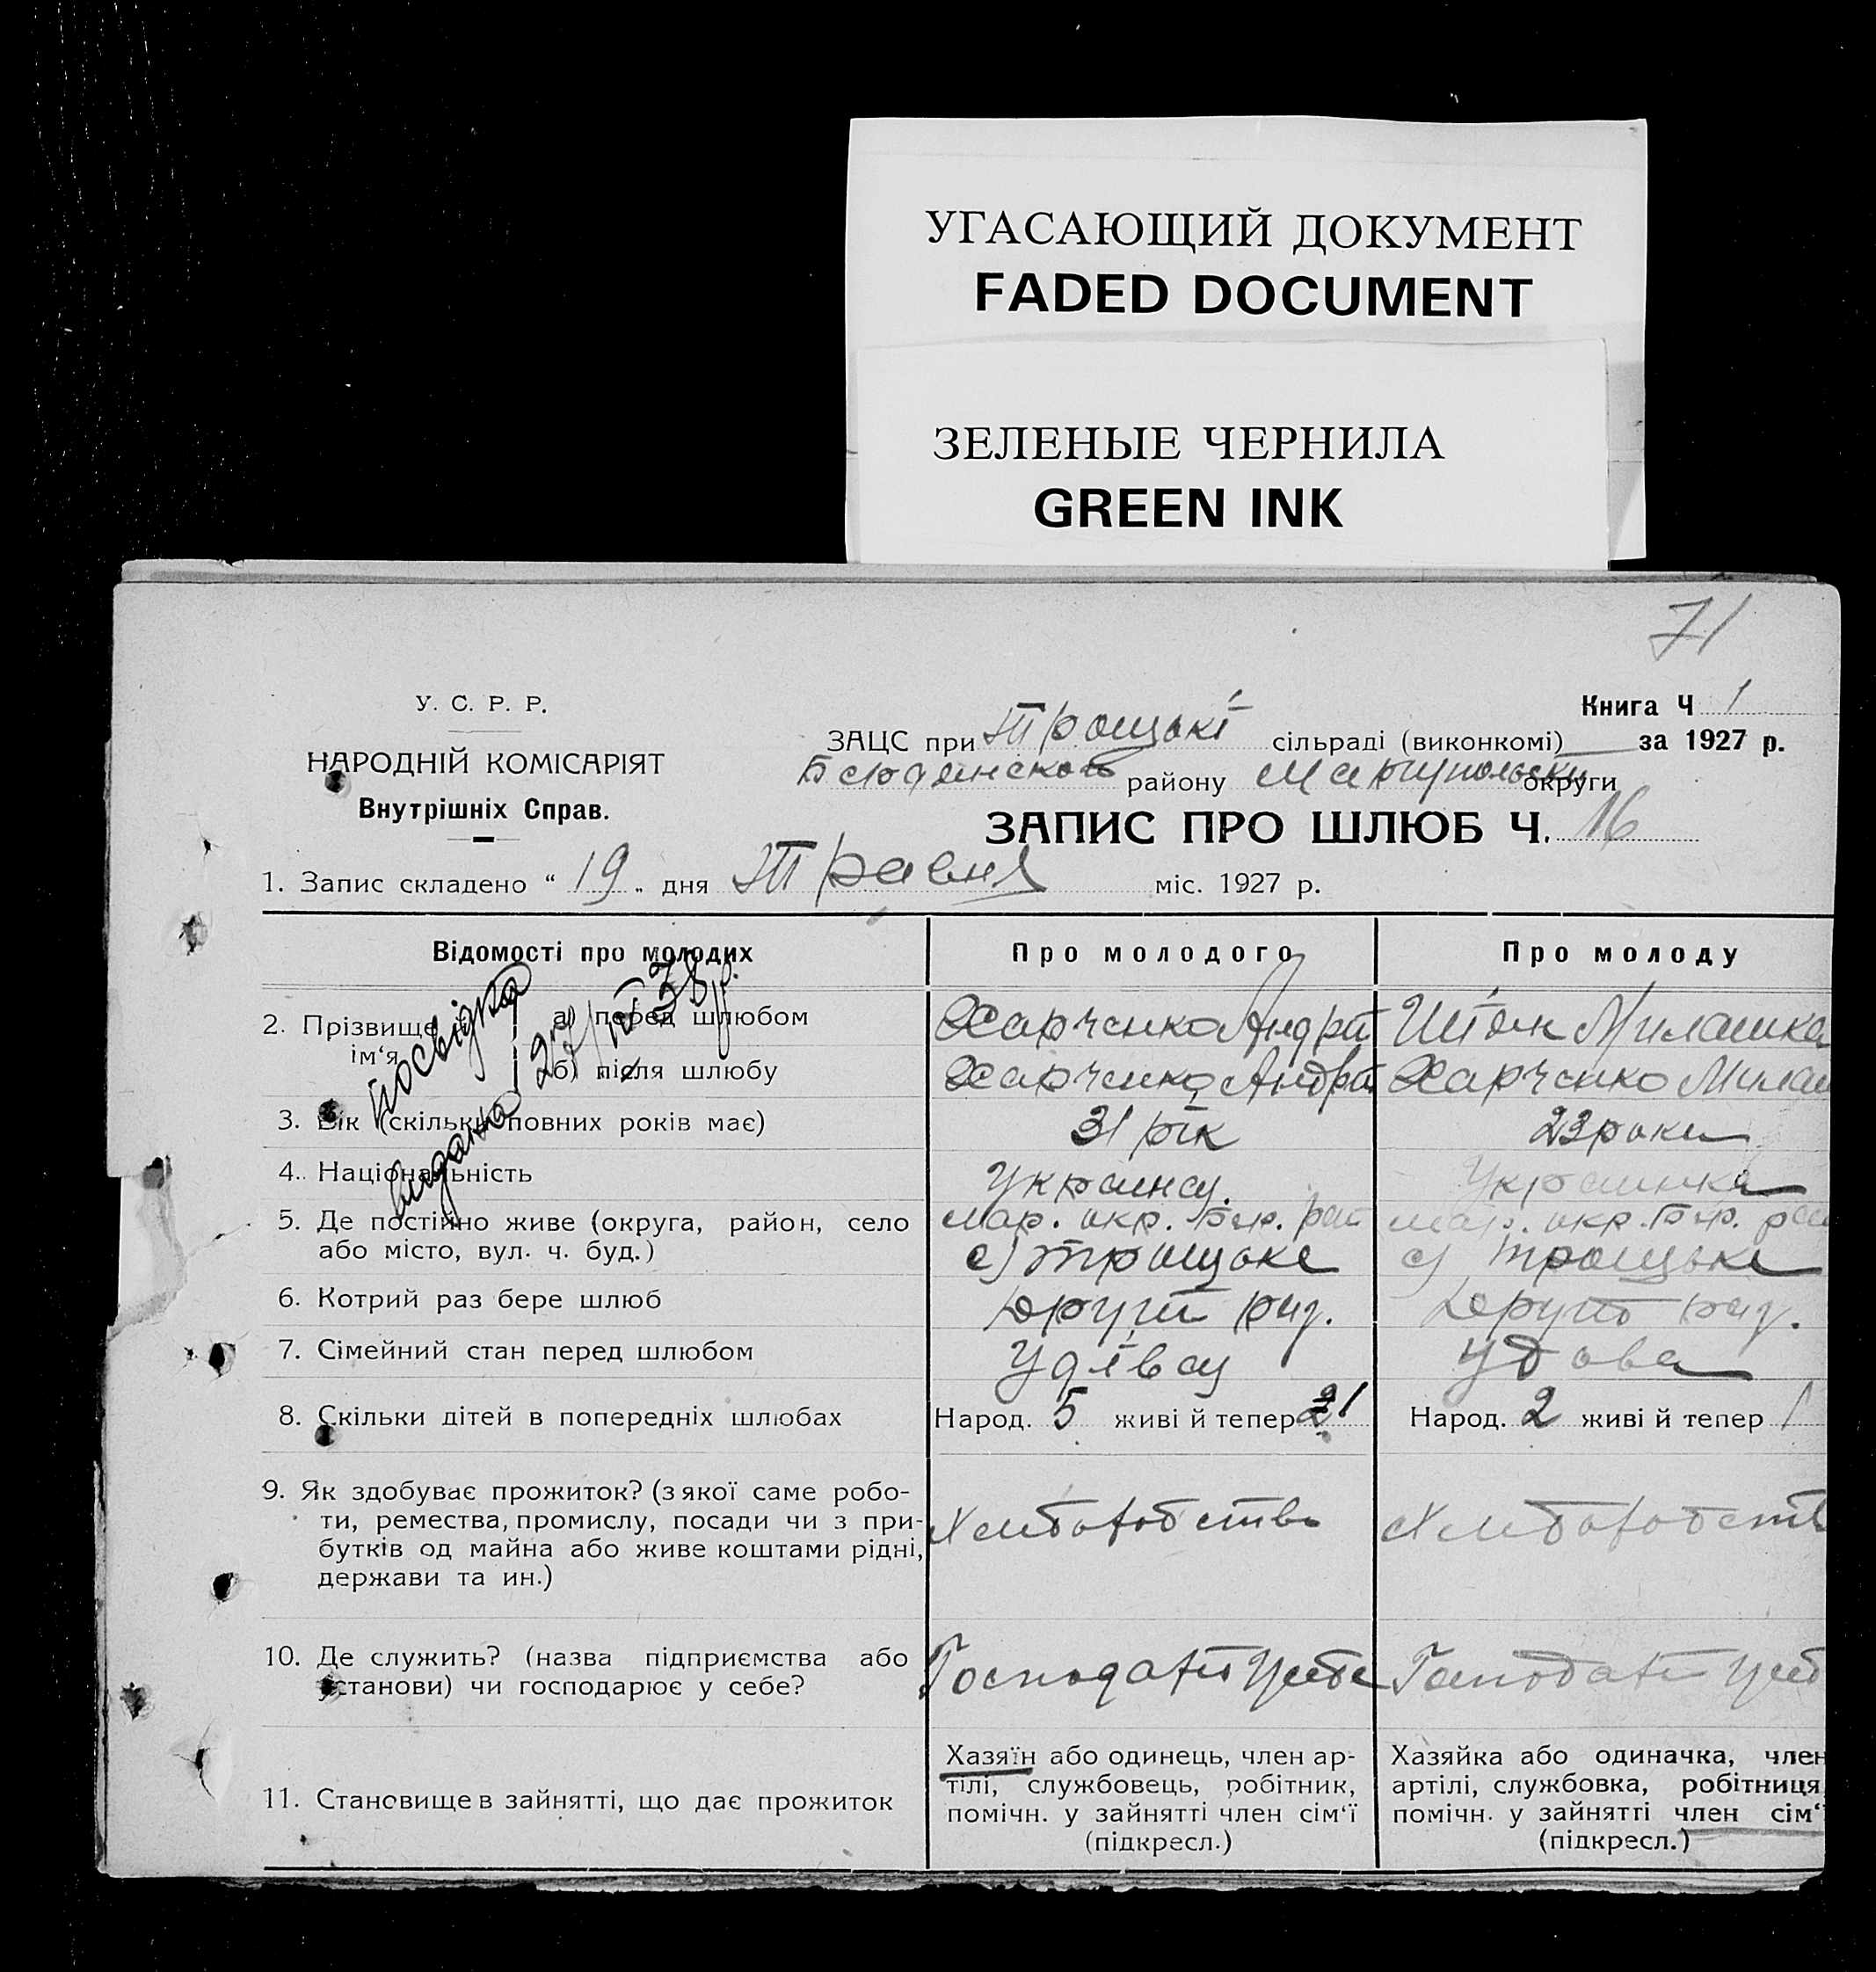 УГАСАЮЩИЙ ДОКУМЕНТ
FADED DOCUMENT
ЗЕЛЕНЫЕ ЧЕРНИЛА
GREEN INK
71
У. С. Р. Р.
НАРОДНІЙ КОМІСАРІЯТ
Внутрішніх Справ.
Книга Ч 1
ЗАЦС при Троцькі сільраді (виконкомі) за 1927 р.
району Маріупольськи округи
ЗАПИС ПРО ШЛЮБ Ч. 16
1. Запис складено “ 19 „ дня Травня міс. 1927 р.
Відомості про молодих
Про молодого
Про молоду
2. Прізвище й ім‘я
а) перед шлюбом
Харченко Андрій
Милашка
б) після шлюбу
Харченко Андрій
Харченко Милаш
посвідка
видана 27/ІІІ 38 р.
3. Вік (скільки повних років має)
31 рік
23 роки
4. Національність
Украинец.
Украинка
5. Де постійно живе (округа, район, село
або місто, вул. ч. буд.)
Мар. окр. рай
с) Троцьке
Мар. окр. рай
с) Троцьке
6. Котрий раз бере шлюб
Другий раз.
Другий раз.
7. Сімейний стан перед шлюбом
Удівец
Удова
8. Скільки дітей в попередніх шлюбах
Народ. 5 живі й тепер 1
Народ. 2 живі й тепер 1
9. Як здобуває прожиток? (з якої саме робо-
ти, ремества, промислу, посади чи з при-
бутків од майна або живе коштами рідні,
держави та ин.)
Хлиборобство
Хлиборобств
10. Де служить? (назва підприємства або
установи) чи господарює у себе?
Господарит у себе
Господарит у себ
11. Становище в зайнятті, що дає прожиток
Хазяїн або одинець, член ар-
тілі, службовець, робітник,
помічн. у зайнятті член сім‘ї
(підкресл.)
Хазяйка або одиначка, член
артілі, службовка, робітниця,
помічн. у зайнятті член сім‘ї
(підкресл.)